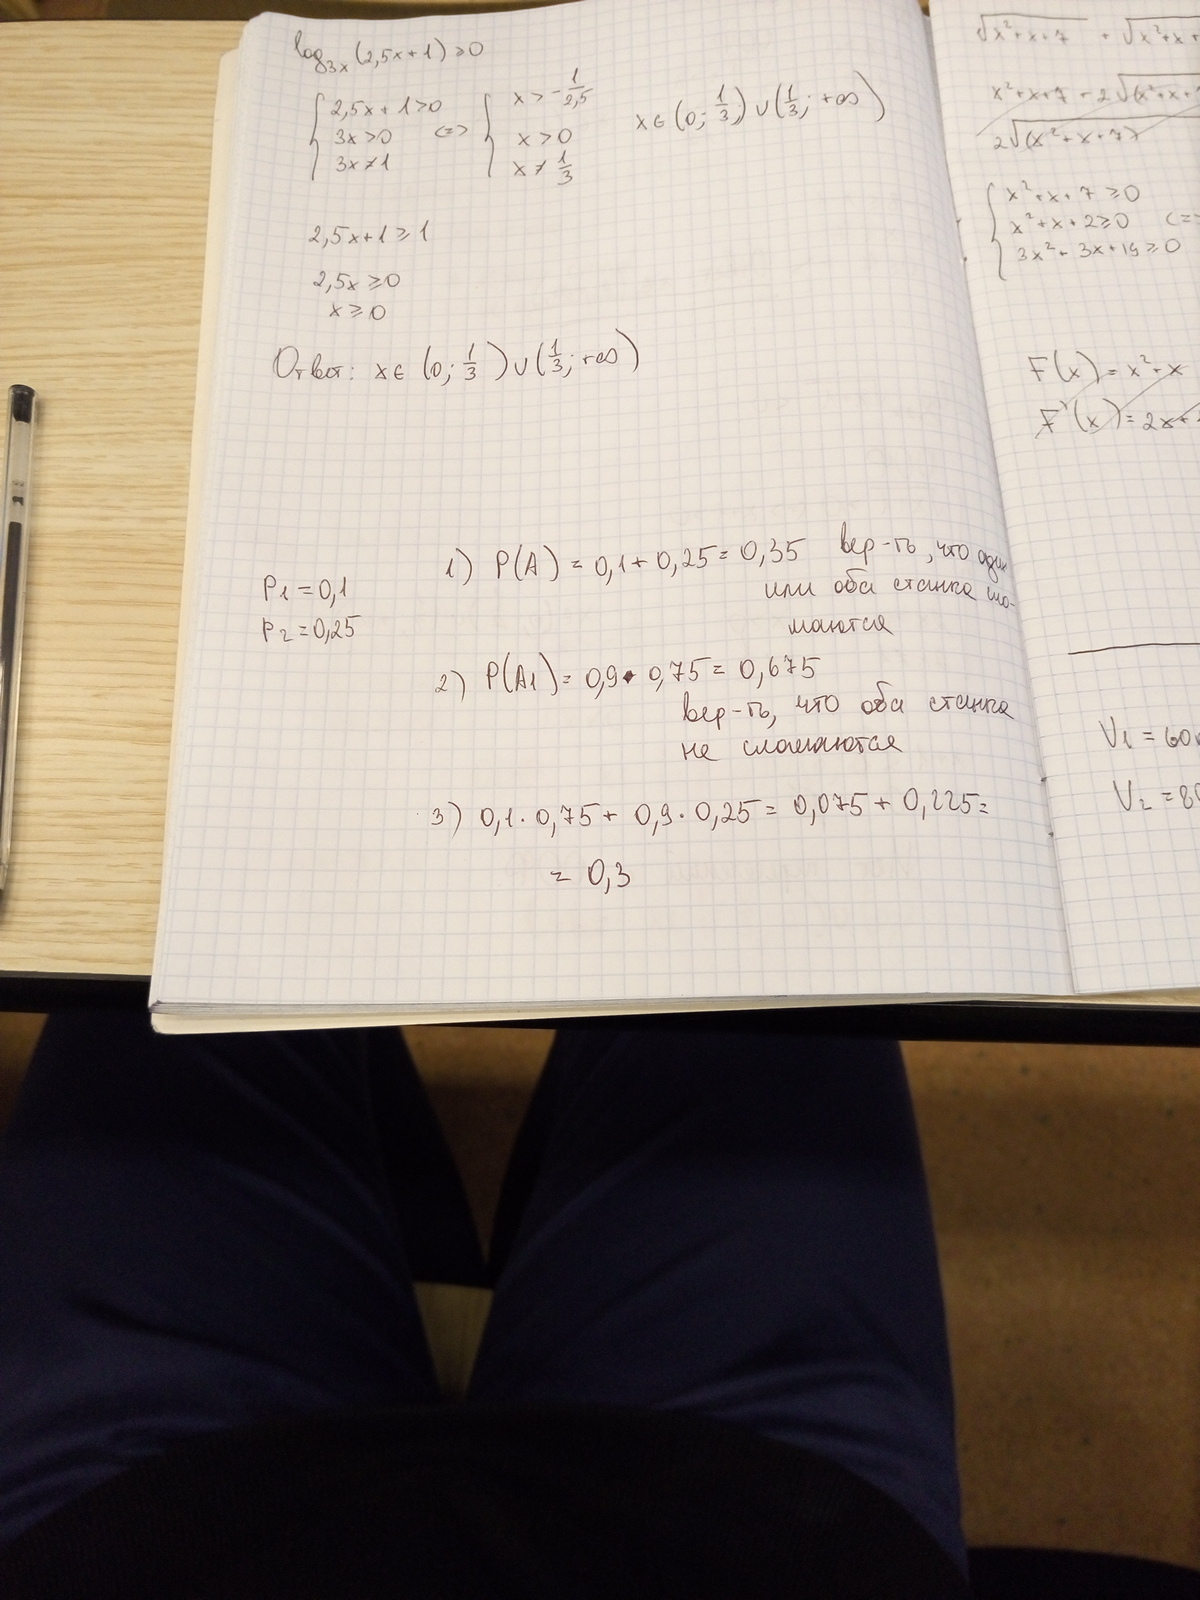 log₃ₓ(2,5x+1) ≥0
{ 2,5x+1>0
3x>0
3x≠1
<=>
{ x>-1/2,5
x>0
x≠1/3
x∈(0; 1/3) ∪ (1/3; +∞)
2,5x+1≥1
2,5x≥0
x≥0
Ответ: x∈ (0; 1/3) ∪ (1/3; +∞)
P1 =0,1
P2 =0,25
1) P(A) = 0,1+ 0,25= 0,35 вер-ть, что один
или оба станка сло-
маются
2) P(A1)= 0,9 · 0,75= 0,675
вер-ть, что оба станка
не сломаются
3) 0,1 · 0,75+ 0,9 · 0,25= 0,075 + 0,225=
= 0,3
√x²+x+7 + √x²+x+
x²+x+7 + 2√(x²+x+7
2√(x²+x+7)
{ x²+x+7 ≥0
x²+x+2≥0 <=>
3x²+3x+19≥0
F(x)= x²+x
F'(x)= 2x+
V1 = 60
V2 = 80